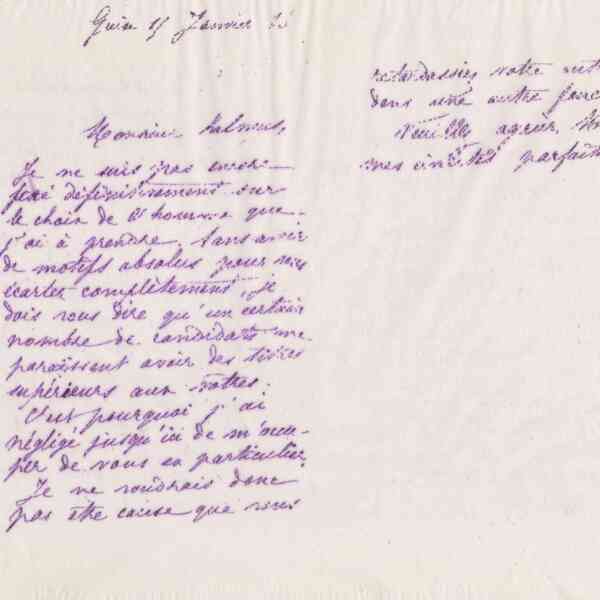 Guise 15 Janvier
Monsieur
Je ne suis pas encore
fixé définitivement sur
le choix de l'homme que
j'ai à prendre. Sans avoir
de motifs absolus pour vous
écarter complètement, je
dois vous dire qu'un certain
nombre de candidats me
paraissent avoir des titres
supérieurs aux votres.
C'est pourquoi j'ai
négligé jusqu'ici de m'occu-
per de vous en particulier.
Je ne voudrais donc
pas être cause que vous
retardassiez votre
dans une autre
Veuillez agréer,
mes civilités